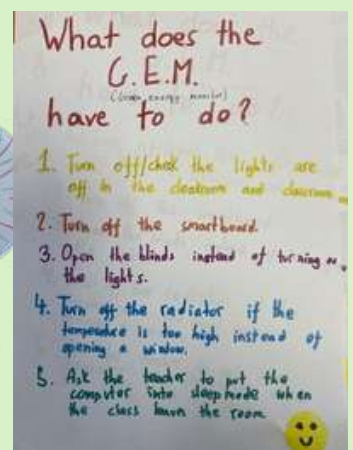 What does the
G.E.M.
(Green energy monitor)
have to do?
1. Turn off/check the lights are
off in the cloakroom and classroom
2. Turn off the smartboard.
3. Open the blinds instead of turning on
the lights.
4. Turn off the radiator if the
temperature is too high instead of
opening a window.
5. Ask the teacher to put the
computer into sleep mode when
the class leaves the room